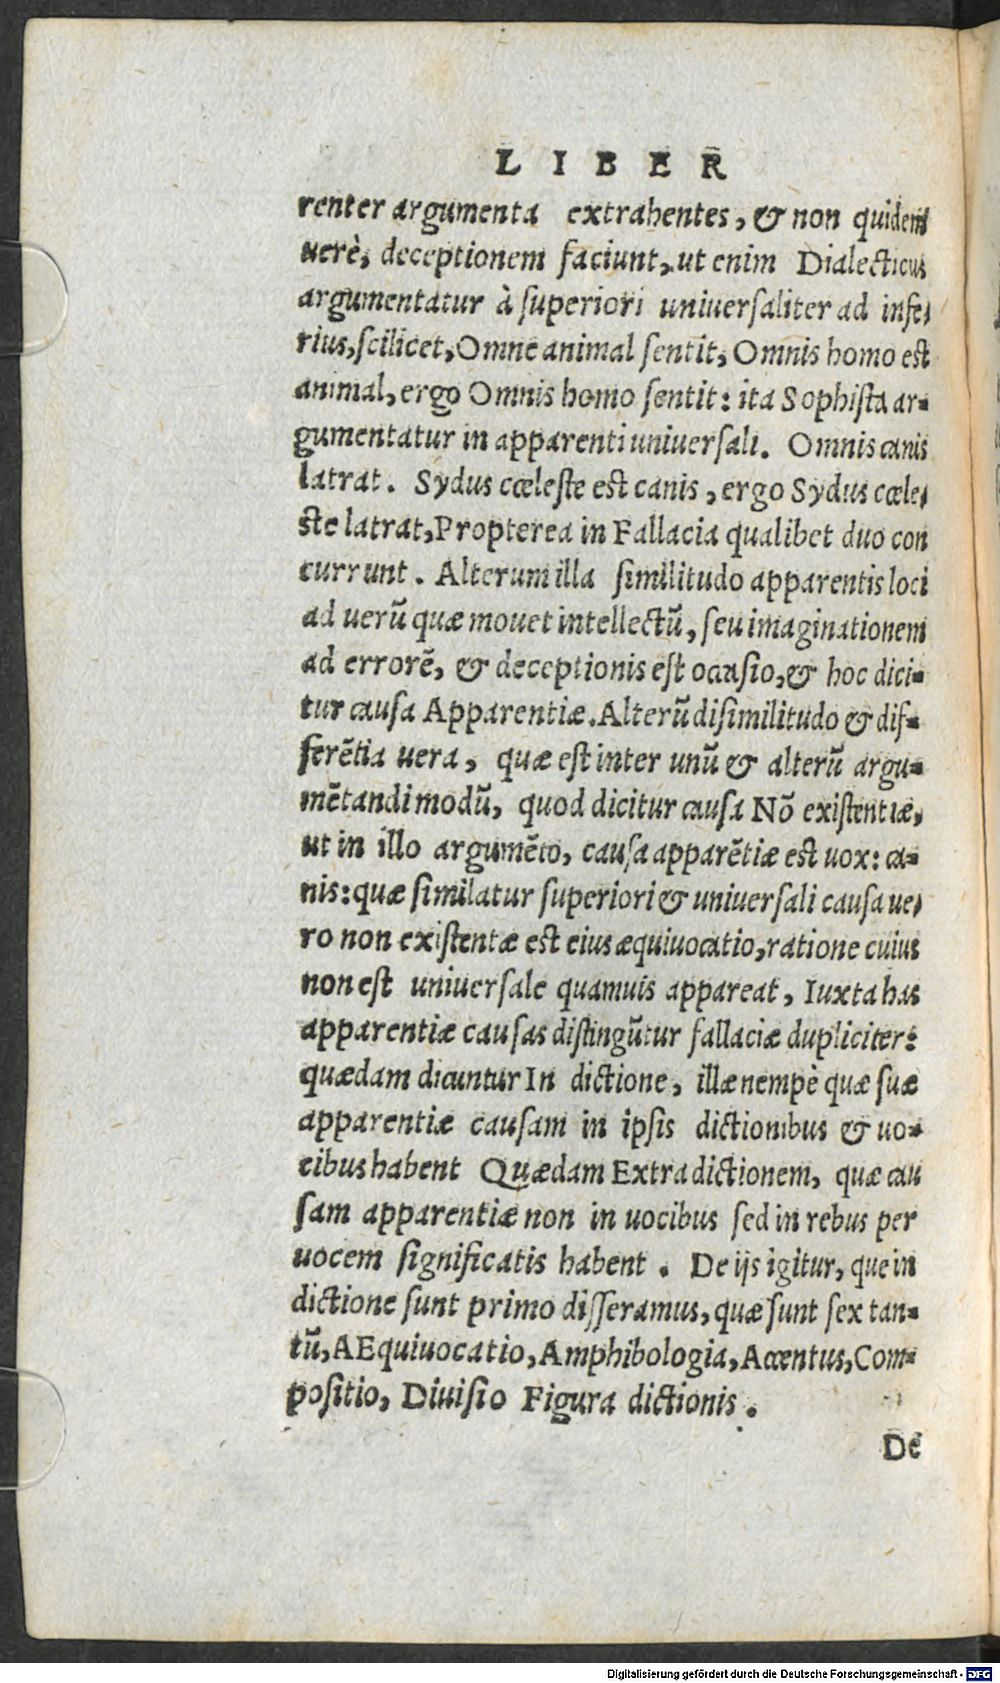 LIBER
renter argumenta extrahentes, & non quidem
uerè, deceptionem faciunt, ut enim Dialecticus
argumentatur à superiori uniuersaliter ad infe-
rius, scilicet, Omne animal sentit, Omnis homo est
animal, ergo Omnis homo sentit: ita Sophista ar-
gumentatur in apparenti uniuersali. Omnis canis
latrat. Sydus cœleste est canis, ergo Sydus cœle-
ste latrat, Propterea in Fallacia qualibet duo con
currunt. Alterum illa similitudo apparentis loci
ad uerū quæ mouet intellectū, seu imaginationem
ad errorē, & deceptionis est ocasio, & hoc dici-
tur causa Apparentiæ. Alterū disimilitudo & dif-
ferētia uera, quæ est inter unū & alterū argu-
mētandi modū, quod dicitur causa Nō existentiæ,
ut in illo argumēto, causa apparētiæ est uox: ca-
nis: quæ similatur superiori & uniuersali causa ue-
ro non existentæ est eius æquiuocatio, ratione cuius
non est uniuersale quamuis appareat, Iuxta has
apparentiæ causas distingūtur fallaciæ dupliciter:
quædam dicuntur In dictione, illæ nempè quæ suæ
apparentiæ causam in ipsis dictionibus & uo-
cibus habent Quædam Extra dictionem, quæ cau
sam apparentiæ non in uocibus sed in rebus per
uocem significatis habent. De ijs igitur, que in
dictione sunt primo disseramus, quæ sunt sex tan-
tū, AEquiuocatio, Amphibologia, Accentus, Com-
positio, Diuisio Figura dictionis.
De
Digitalisierung gefördert durch die Deutsche Forschungsgemeinschaft - DFG